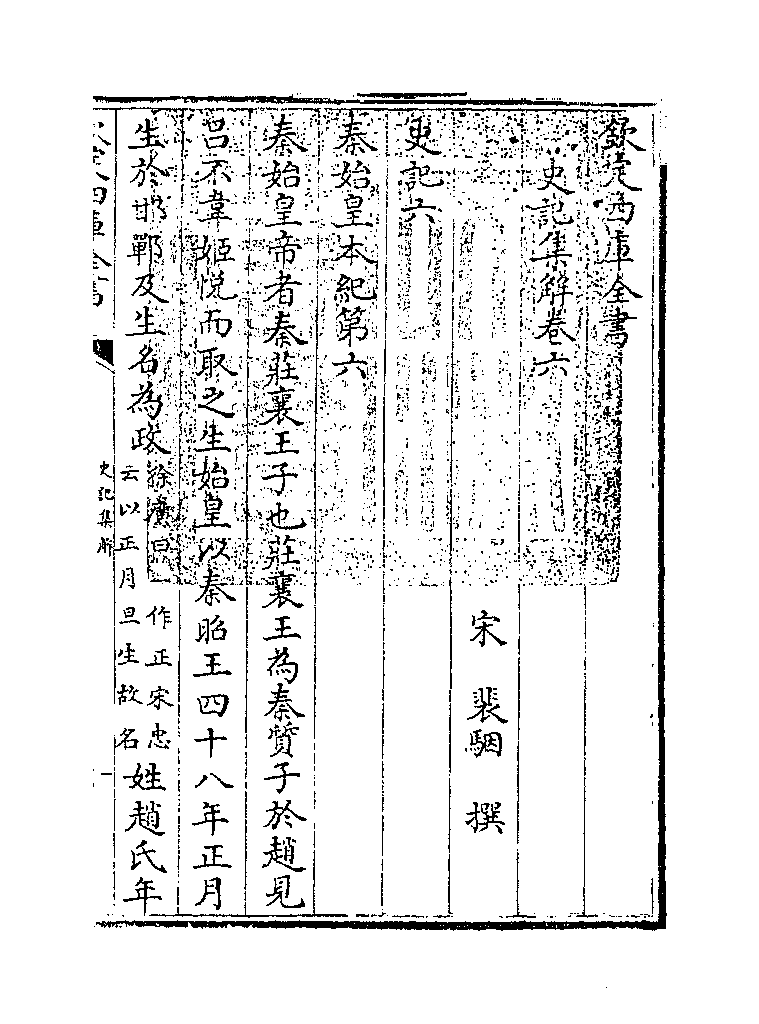 欽定四庫全書
史記集解卷六
宋 裴駰 撰
史記六
秦始皇本紀第六
秦始皇帝者秦莊襄王子也莊襄王為秦質子於趙見
呂不韋姬悅而取之生始皇以秦昭王四十八年正月
生於邯鄲及生名為政徐廣曰一作正宋忠云以正月旦生故名姓趙氏年
史記集解
一